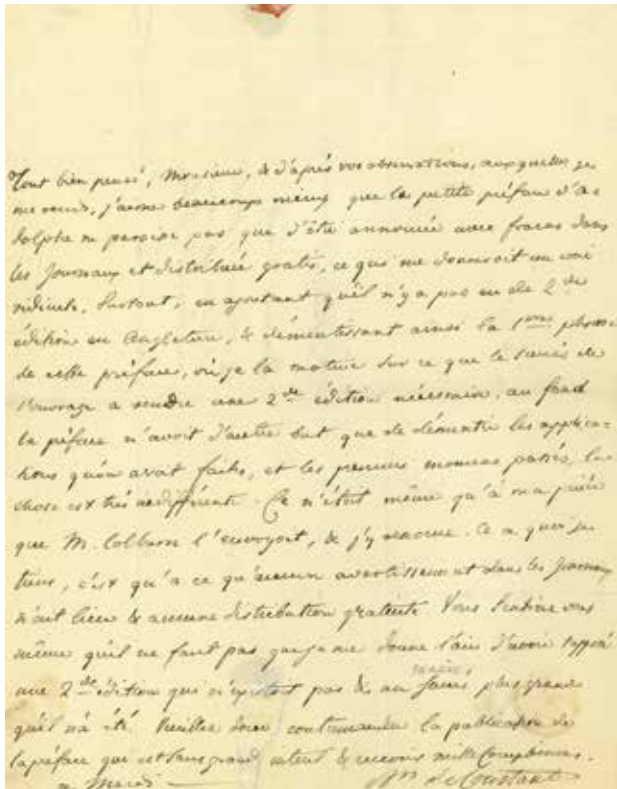 Tout bien pensé, Monsieur, & d'après vos observations, auxquelles je
me rends, j'aime beaucoup mieux que la petite préface d'A=
dolphe ne paroisse pas que d'être annoncée avec fracas dans
les Journaux et distribuée gratis, ce qui me donneroit un vrai
ridicule, surtout, en ajoutant qu'il n'y a pas eu de 2de
édition en Angleterre, & démentissant ainsi la 1ère phrase
de cette préface, où je la motive sur ce que le succès de
l'ouvrage a rendu une 2de édition nécessaire. au fond
la préface n'avoit d'autre but que de démentir les applica=
tions qu'on avait faites, et les premiers momens passés, la
chose est très indifférente. Ce n'étoit même qu'à ma prière
que M. Colburn l'envoyoit, & j'y renonce. Ce a quoi je
tiens, c'est qu'a ce qu'aucun avertissement dans les Journaux
n'ait lieu & aucune distribution gratuite. Vous sentirez vous
même qu'il ne faut pas que je me donne l'air d'avoir supposé
une 2de édition qui n'existoit pas & un succès plus grand
qu'il n'a été. Veuillez donc contremander la publication de
la préface qui est sans grand intérêt & recevoir mille Complimens.
Mardi
B. de Constant